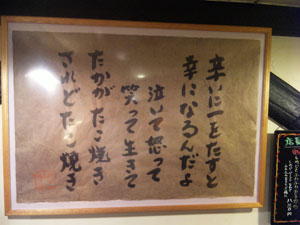 辛いに一をたすと
幸になるんだよ
泣いて怒って
笑って生きて
たかがたこ焼き
されどたこ焼き